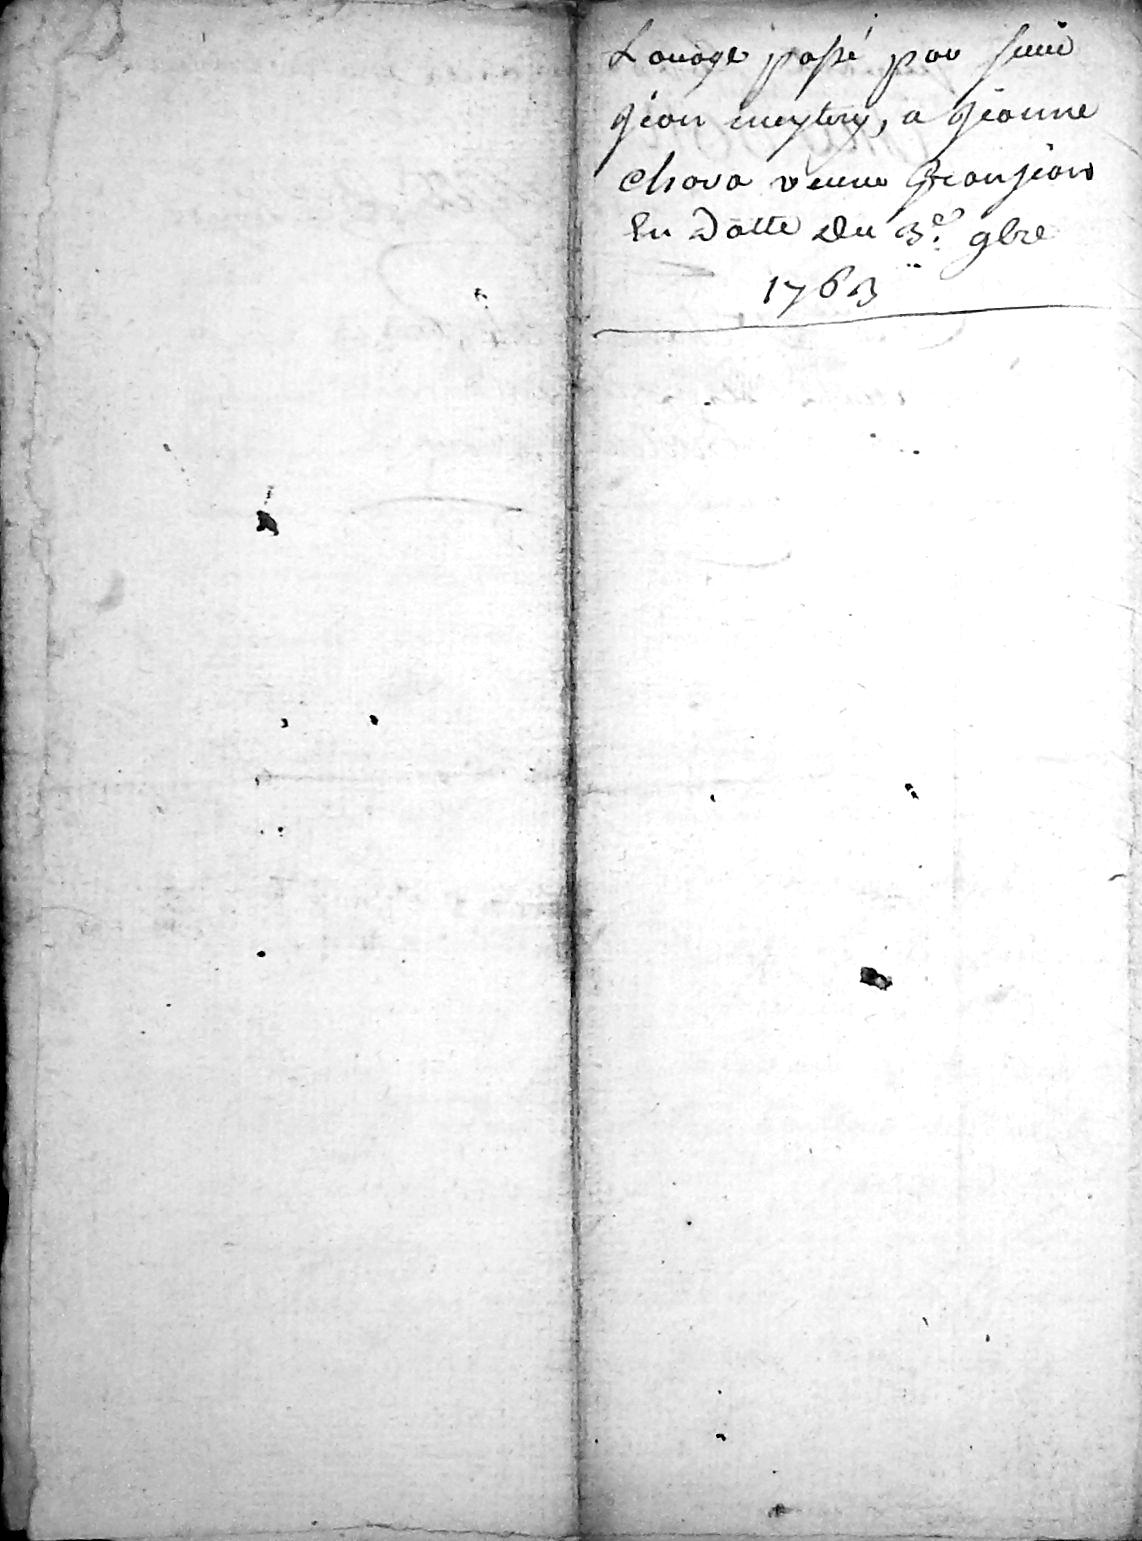 Louage passé par sieur
Jean meytery, a Jeanne
Chava veuve Granjean
En Datte Du 3e. 9bre
1763